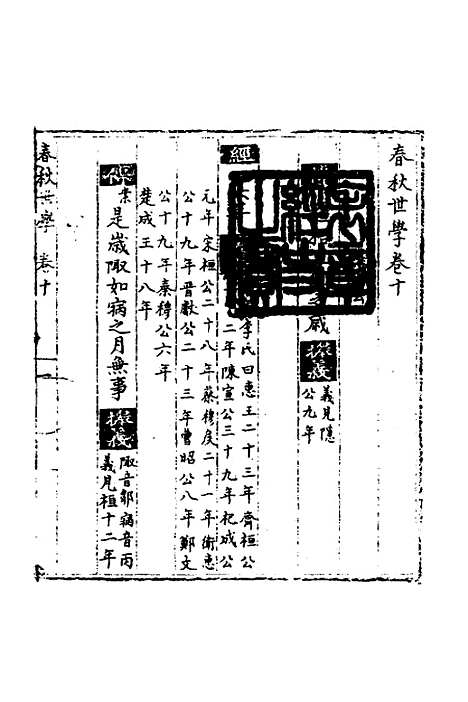 春秋世學卷十
歲
義見隱
公九年
經
李氏曰惠王二十三年齊桓公
二年陳宣公三十九年杞成公
元年宋桓公二十八年蔡穆侯二十一年衛惠
公十九年晉獻公二十三年曹昭公八年鄭文
公十九年秦穆公六年
楚成王十八年
業
是歲陬如寎之月無事
陬音鄒寎音丙
義見桓十二年
春秋世學 卷十